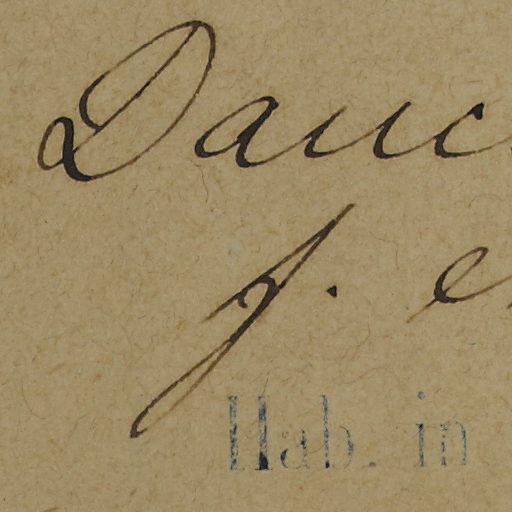 Dauc
f. e
Hab. in